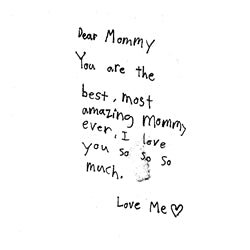 Dear Mommy
You are the
best, most
amazing Mommy
ever, I love
you so so so
much.
Love Me♡